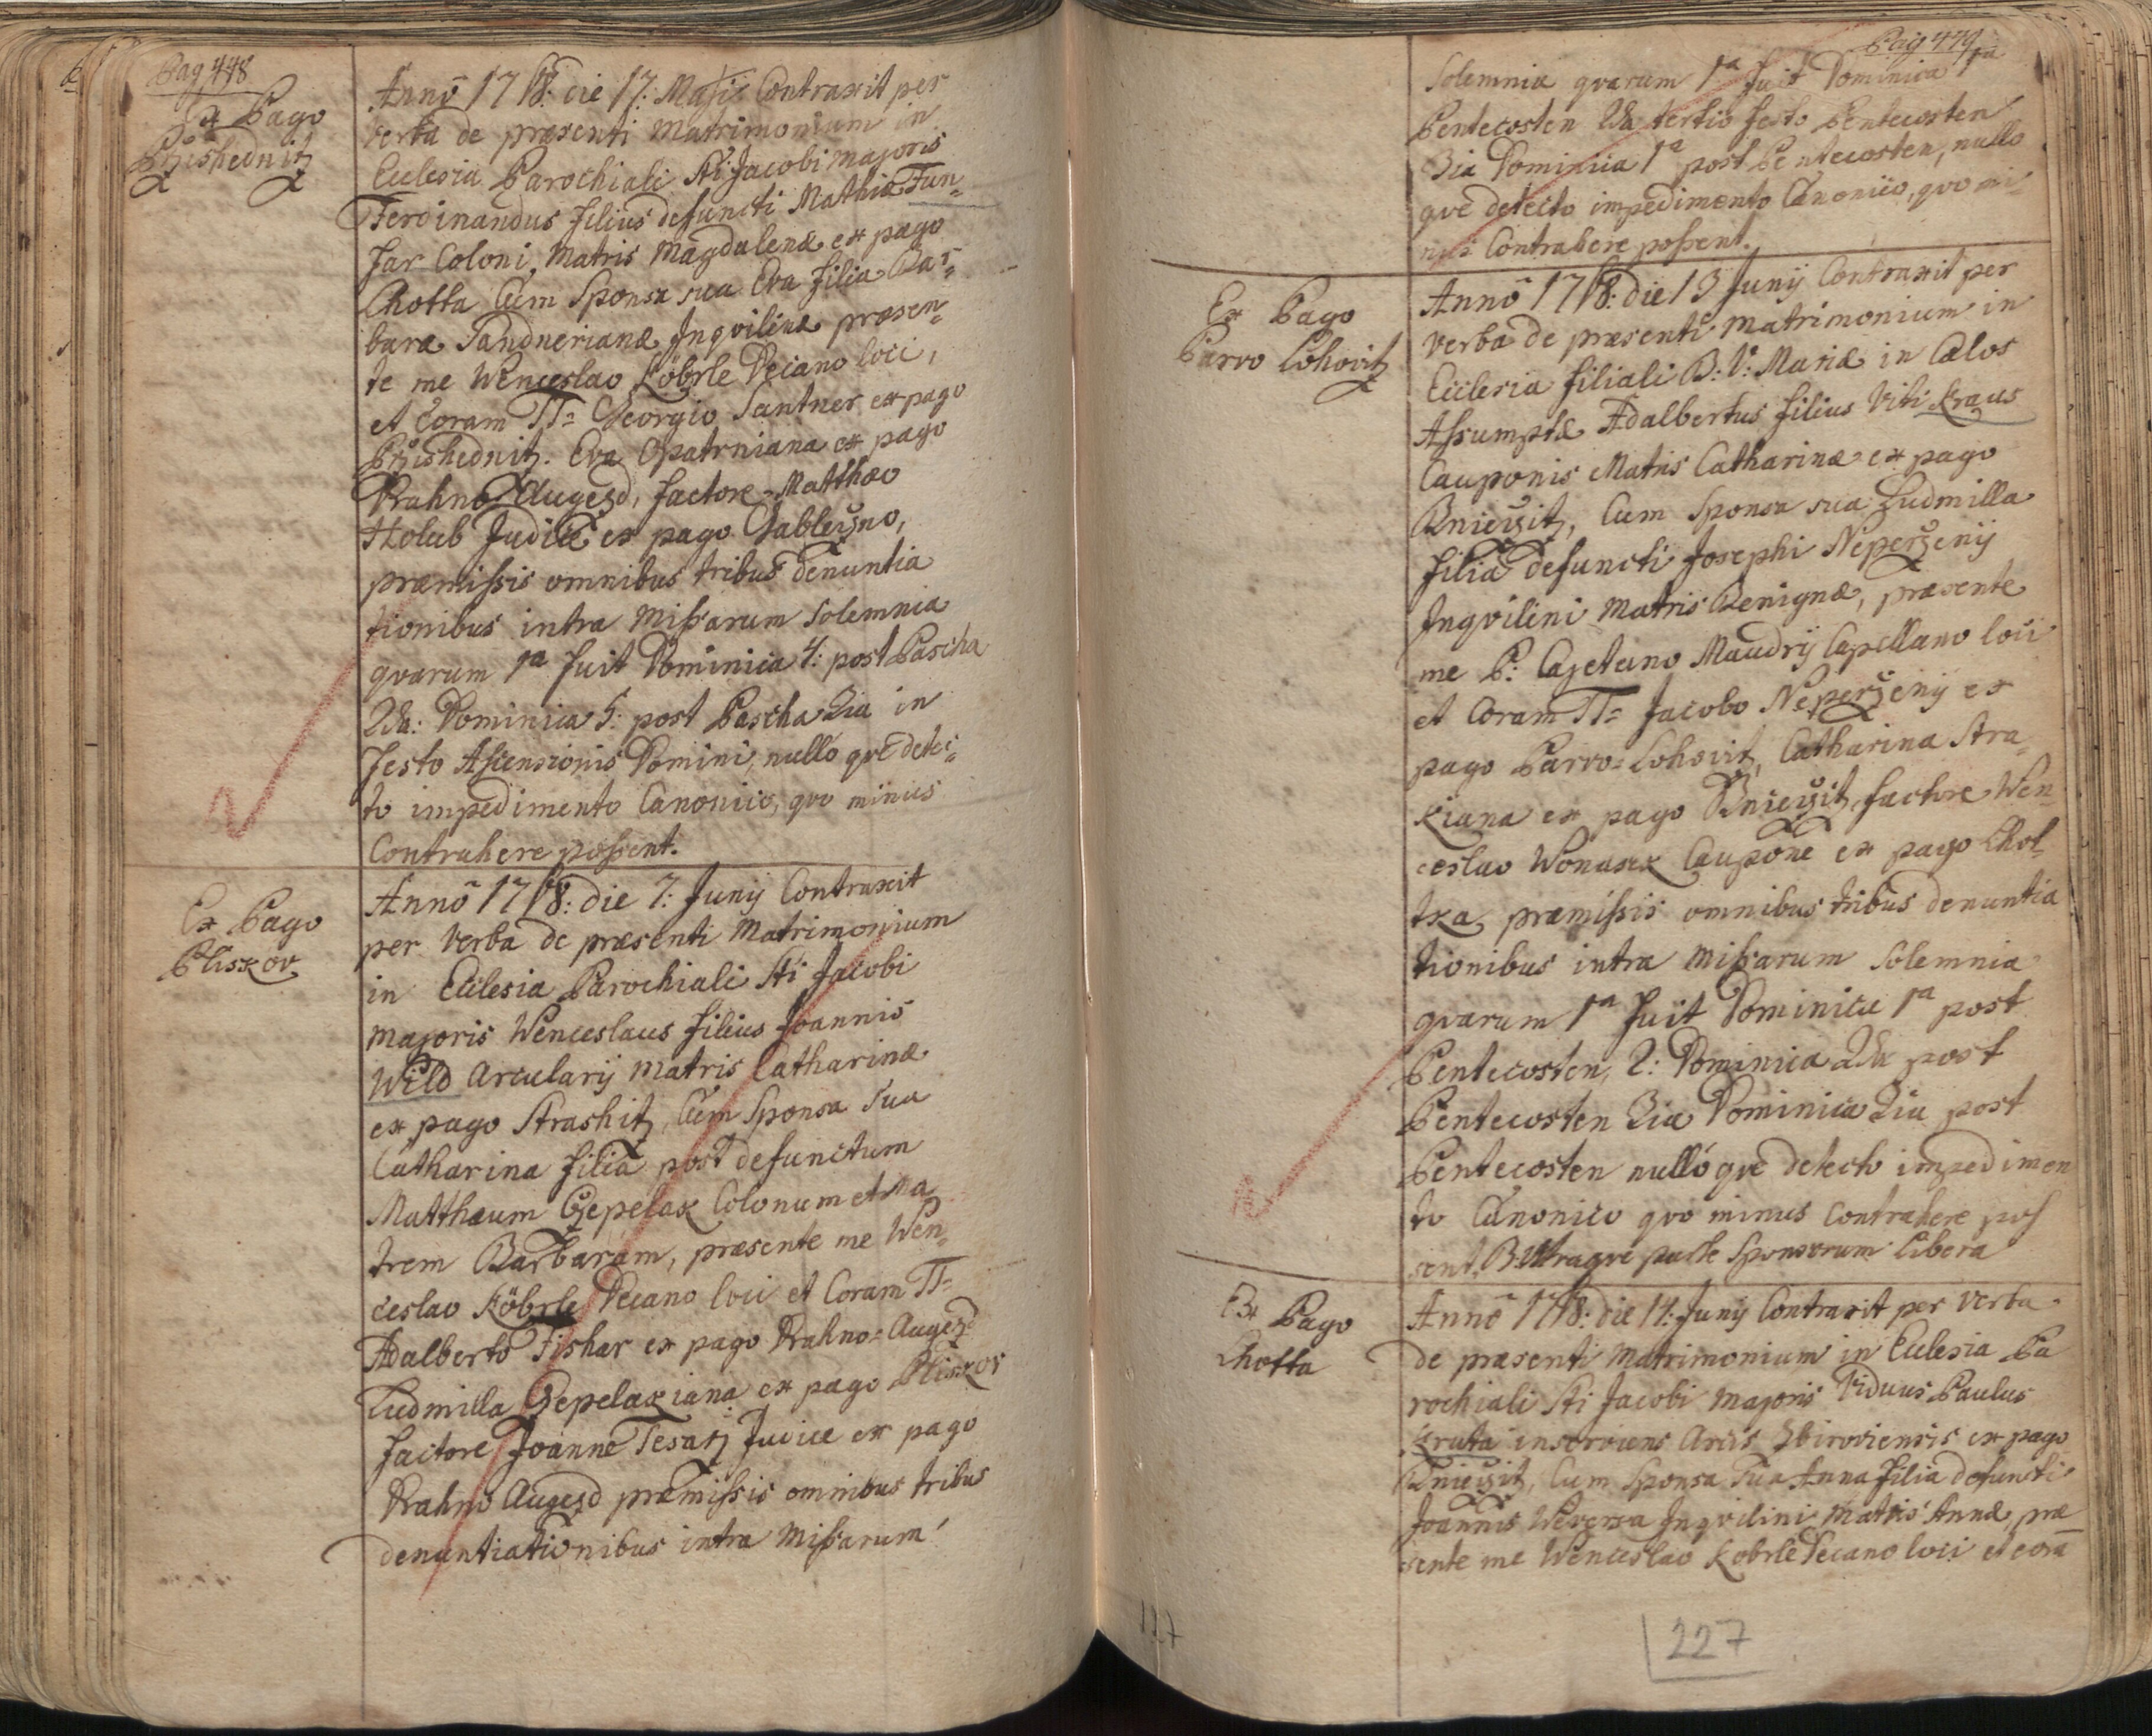 Pag 448
Ex Pago
Przishednitz
Anno 1718: die 17: Maji Contraxit per
verba de præsenti matrimonium in
Ecclesia Parochiali Sti Jacobi majoris
Ferdinandus filius defuncti Mathiæ Fun-
far Coloni, Matris Magdalenæ ex pago
Lhotta Cum Sponsa sua Eva filia Bar-
baræ Sandnerianæ Inqvilinæ præsen-
te me Wenceslao Köbrle Decano loci,
et Coram TT= Georgio Santner ex pago
Przishednitz. Eva Opatrniana ex pago
Drahno Augezd, factore Matthæo
Holub Judice ex pago Jableczno,
præmissis omnibus tribus denuntia
tionibus intra Missarum solemnia
qvarum 1a fuit Dominica 4: post Pascha
2da: Dominica 5: post Pascha 3ia in
festo Ascensionis Domini, nulló qve detec-
to impedimento Canonico, qvo minus
Contrahere possent.
Ex Pago
Pliskov
Anno 1718: die 7: Junij Contraxit
per Verba de præsenti Matrimonium
in Ecclesia Parochiali Sti Jacobi
majoris Wenceslaus filius Joannis
Wild Arcularij Matris Catharinæ
ex pago Strashitz, Cum Sponsa Sua
Catharina filia post defunctum
Matthæum Czepelak Colonum et Ma
trem Barbaram, præsente me Wen-
ceslao Köbrle Decano loci et Coram TT=
Adalberto Fishar ex pago Drahno=Augezd
Ludmilla Czepelakiana ex pago Pliskov
factore Joanne Tesarz Judice ex pago
Drahno Augezd præmissis omnibus tribus
denuntiationibus intra Missarum
Pag 449
Solemnia qvarum 1a fuit Dominica 1ma
Pentecosten 2da tertio festo Pentecosten
3ia Dominica 1a post Pentecosten, nullo
qve detecto impedimento Canonico, qvo mi-
nus Contrahere possent.
Ex Pago
Parvo Lohovitz
Anno 1718: die 13 Junij Contraxit per
Verba de præsenti matrimonium in
Ecclesia filiali B: V: Mariæ in Cælos
Assumptæ Adalbertus filius Viti Kraus
Cauponis Matris Catharinæ ex pago
Kniczitz, Cum Sponsa sua Ludmilla
filia defuncti Josephi Neperzenij
Inqvilini Matris Benignæ, præsente
me P: Cajetano Maudrij Capellano loci
et Coram TT= Jacobo Neperzenij ex
pago Parvo=Lohovitz, Catharina Stra-
kiana ex pago Kniczitz, factore Wen
ceslao Wonasek Caupone ex pago Lhot-
tka, præmissis omnibus tribus denuntia
tionibus intra Missarum Solemnia
qvarum 1a fuit Dominica 1a post
Pentecosten, 2: Dominica 2da post
Pentecosten 3ia Dominica 3ia post
Pentecosten nulló qve detecto impedimen
to Canonico qvo minus Contrahere pos
sent, Utraqve parte Sponsorum libera
Ex Pago
Lhotta
Anno 1718: die 14: Junij Contraxit per verba
de præsenti Matrimonium in Ecclesia Pa
rochiali Sti Jacobi majoris Viduus Paulus
Kruta inserviens Arcis Zbiroviensis ex pago
Kniczitz, Cum Sponsa Sua Anna filia defuncti
Joannis Inqvilini Matris Annæ, præ
sente me Wenceslao Kobrle Decano loci et corā
227
127